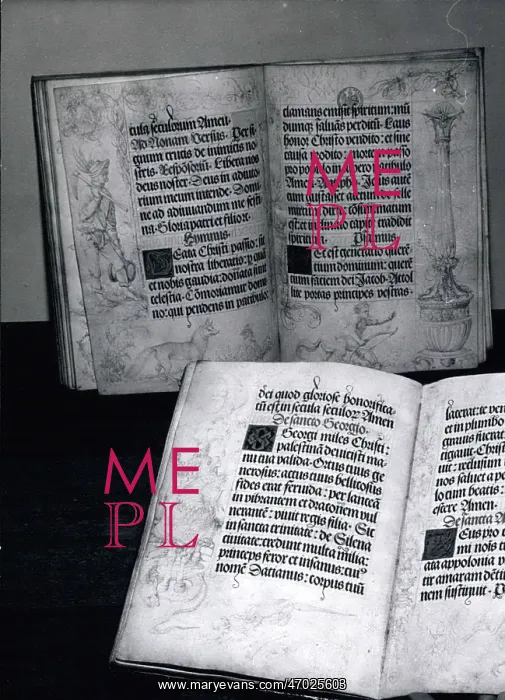 cula seculorum Amen.
Ad Nonam Versus. Per si
gnum crucis de inimicis no
stris. Responsoriū. Libera nos
deus noster. Deus in adiuto
rium meum intende. Domi
ne ad adiuuandum me festi
na. Gloria patri et filio
Hymnus.
Eata Christi passio: sit
nostra liberatio: p quā
et nobis gaudia: donata sint
celestia. Cōmoriamur domi
no: qui pendens in patibulo:
clamans emisit spiritum: mū
dumq; saluās perditū. Laus
honor Christo vendito: et sine
causa prodito: morte
pro
Amen.
est: et
spiritum.
Et est generatio querē
tium dominum: querē
tium faciem dei Jacob. Attol
lite portas principes vestras.
ME
PL
dei quod gloriose honorifica
tū est in secula seculoꝝ Amen
De sancto Georgio.
Georgi miles Christi:
palestinā deuicisti ma
nu tua valida. Ortus tuus ge
nerosus: actus tuus bellicosus
fides erat feruida: per lanceā
in vibrantem et draconem vul
nerantē: viuit regis filia. Sit
in sancta trinitate: de Silena
ciuitate: credunt multa milia:
princeps ferox et insanus: cui⁹
nomē Dacianus: corpus tuū
lacerar: te ven
et in plumbo
grauis fuerat
nos saluet a pe
locum beatis:
Amen.
De sancta A
Eus pro t
mi nois tu
ata appolonia v
tir amaram
nem sustinuit. D
ME
PL
www.maryevans.com/47025603